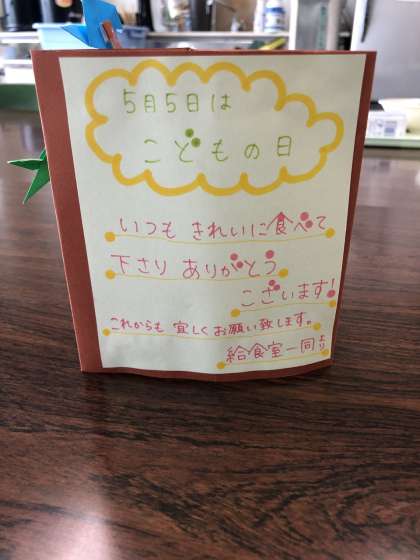 5月5日は
こどもの日
いつも きれいに食べて
下さり ありがとう
ございます!
これからも 宜しくお願い致します。
給食室一同より